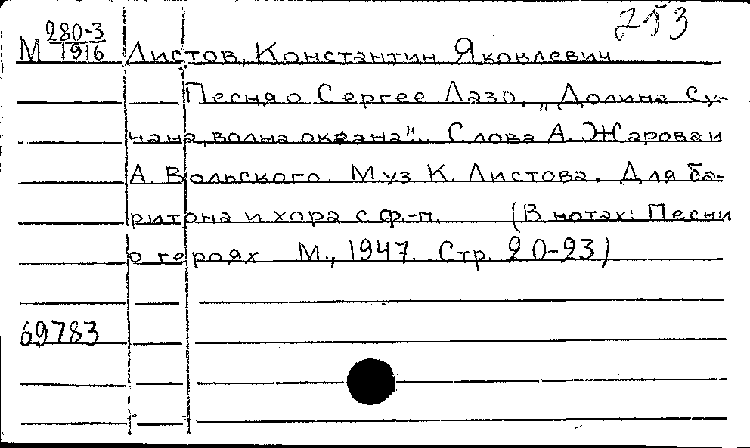 253
М 280-3/1916 Листов, Константин Яковлевич
Песня о Сергее Лазо. „Долина Су-
чана, волна океана". Слова А. Жарова и
А. Вольского. Муз К. Листова. Для ба-
ритона и хора с ф.-п. (В нотах: Песни
о героях М., 1947. Стр. 20-23)
69783